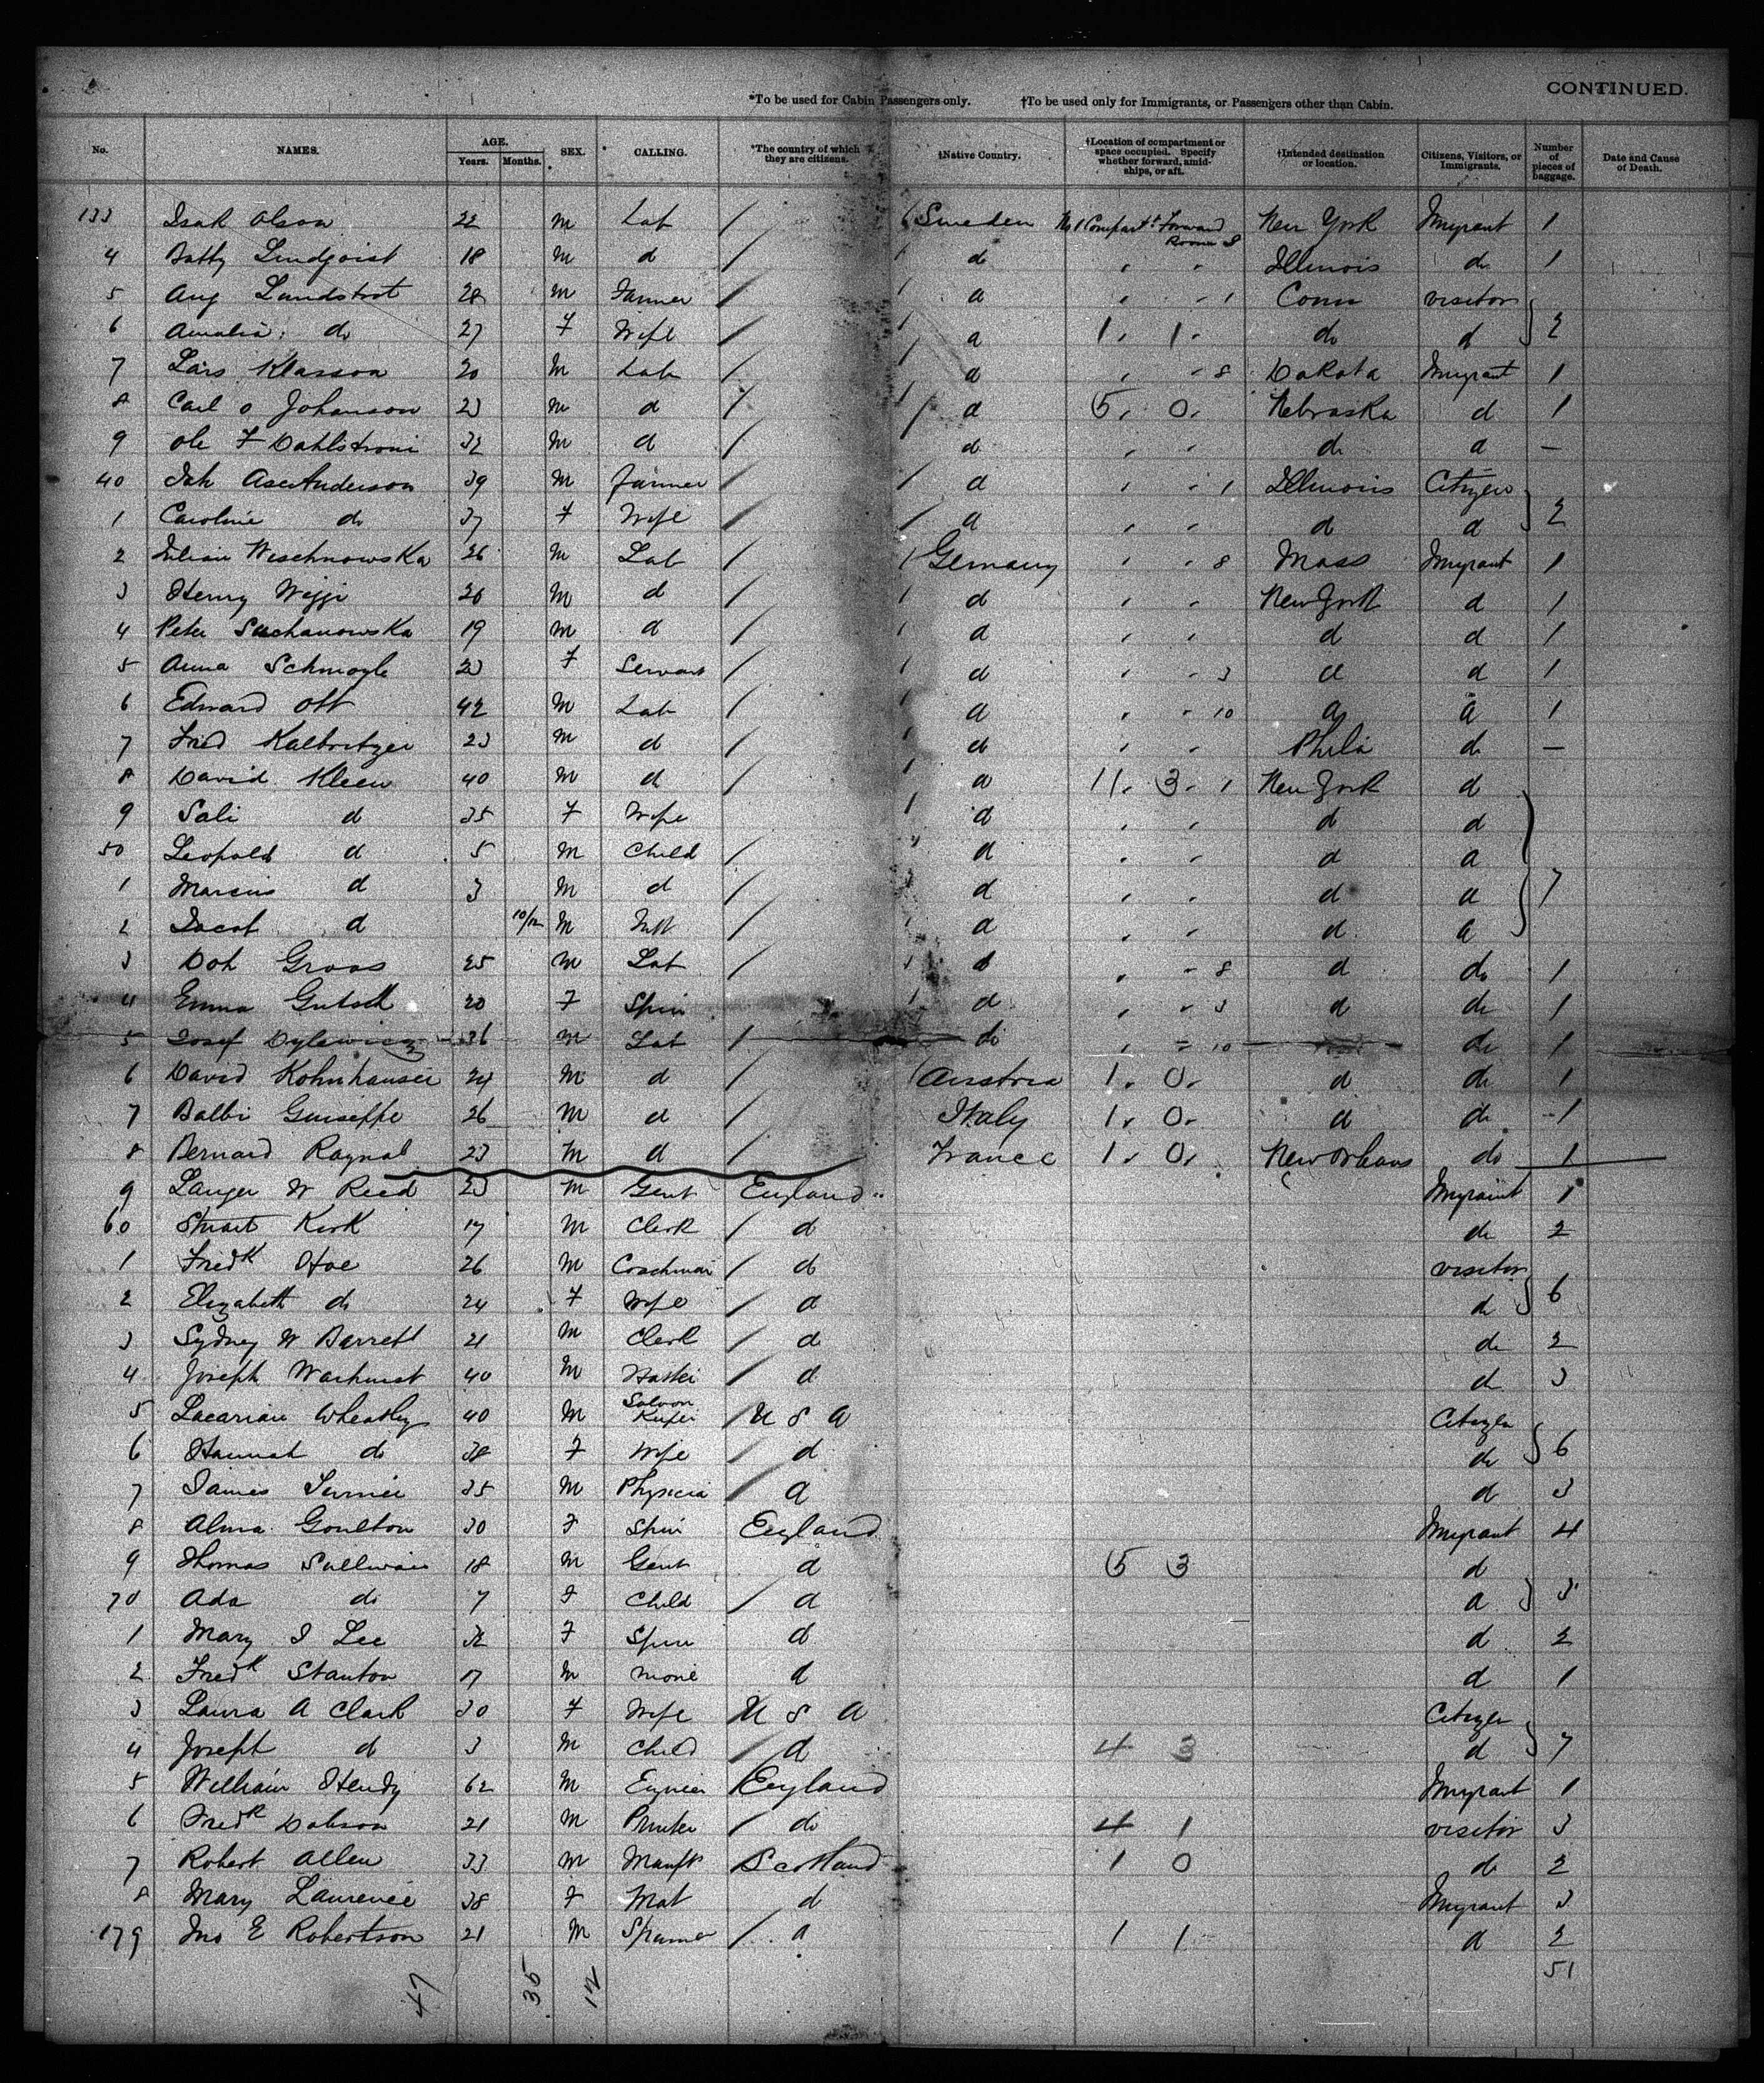 CONTINUED.
*To be used for Cabin Passengers only. †To be used only for Immigrants, or Passengers other than Cabin.
No. NAMES. AGE. Years. Months. SEX. CALLING. *The country of which they are citizens. †Native Country. †Location of compartment or space occupied. Specify whether forward, amidships, or aft. †Intended destination or location. Citizens, Visitors, or Immigrants. Number of pieces of baggage. Date and Cause of Death.
133 Isak Olson 22 M Lab / Sweden No 1 Compart't Forward Room 8 New York Imgrant 1
4 Lindqvist 18 M d / d " " Illinois do 1
5 Aug 28 M Farmer / d " " 1 Conn visitor
6 Amalia do 27 F Wife / d 1. 1. do d 2
7 Lars Klasson 20 M Lab / d " " 8 Dakota Imgrant 1
8 Carl O Johanson 23 M d / d 5. 0. Nebraska d 1
9 Ole F Dahlstrom 32 M d / d " " do d —
40 Joh Anderson 39 M Farmer / d " " 1 Illinois Citizen
1 Caroline do 37 F Wife / d " " d d 2
2 Wischnowska 26 M Lab / Germany " " 8 Mass Imgrant 1
3 Henry 20 M d / d " " New York d 1
4 Peter Suchanowska 19 M d / d " " d d 1
5 Anna Schmogle 23 F Servant / d " " 3 d d 1
6 Edward Ott 42 M Lab / d " " 10 d d 1
7 Fred Kalbritzer 23 M d / d " " Phila do —
8 David Kleen 40 M d / d 11. 3. 1 New York d
9 Sali d 35 F Wife d " " d d
50 Leopold d 5 M Child / d " " d d
1 Marcus d 3 M d / d " " d d 7
2 Jacob d 10/12 M Inft / d " " d d
3 Groos 25 M Lab / d " " 8 d do 1
4 Emma Gutsch 20 F Spin d " " 3 d do 1
5 Josef Dylewicz 36 M Lab / do " " 10 do 1
6 David Kohnhauser 24 M d / Austria 1. 0. d do 1
7 Balbi Guiseppe 26 M d / Italy 1. 0. d do 1
8 Bernard Raynal 23 M d / France 1. 0. New Orleans do 1
9 W Reed 23 M Gent England Imgrant 1
60 Stuart Kirk 17 M Clerk / d do 2
1 Fredk Hoe 26 M Coachman / do visitor
2 Elizabeth do 24 F Wife / d do 6
3 Sydney W Barrett 21 M Clerk / d do 2
4 Joseph Warhurst 40 M / d do 3
5 Wheatley 40 M Saloon Keeper / U S A Citizen
6 Hannah do 38 F Wife / d do 6
7 James 35 M Physicia / d d 3
8 Alma Goulton 30 F Spin England Imgrant 4
9 Thomas Sullivan 18 M Gent d 5 3 d
70 Ada do 7 F Child / d d 3
1 Mary I Lee 32 F Spin d d 2
2 Fredk Stanton 17 M none d d 1
3 Laura A Clark 30 F Wife U S A Citizen
4 Joseph d 3 M Child / d 4 3 d 7
5 William Hendy 62 M England Imgrant 1
6 Fredk Dobson 21 M Printer / do 4 1 visitor 3
7 Robert Allen 33 M Manftr Scotland 1 0 do 2
8 Mary Laurence 38 F Mat d Imgrant 3
179 Jno E Robertson 21 M / d 1 1 d 2
47 35 12 51